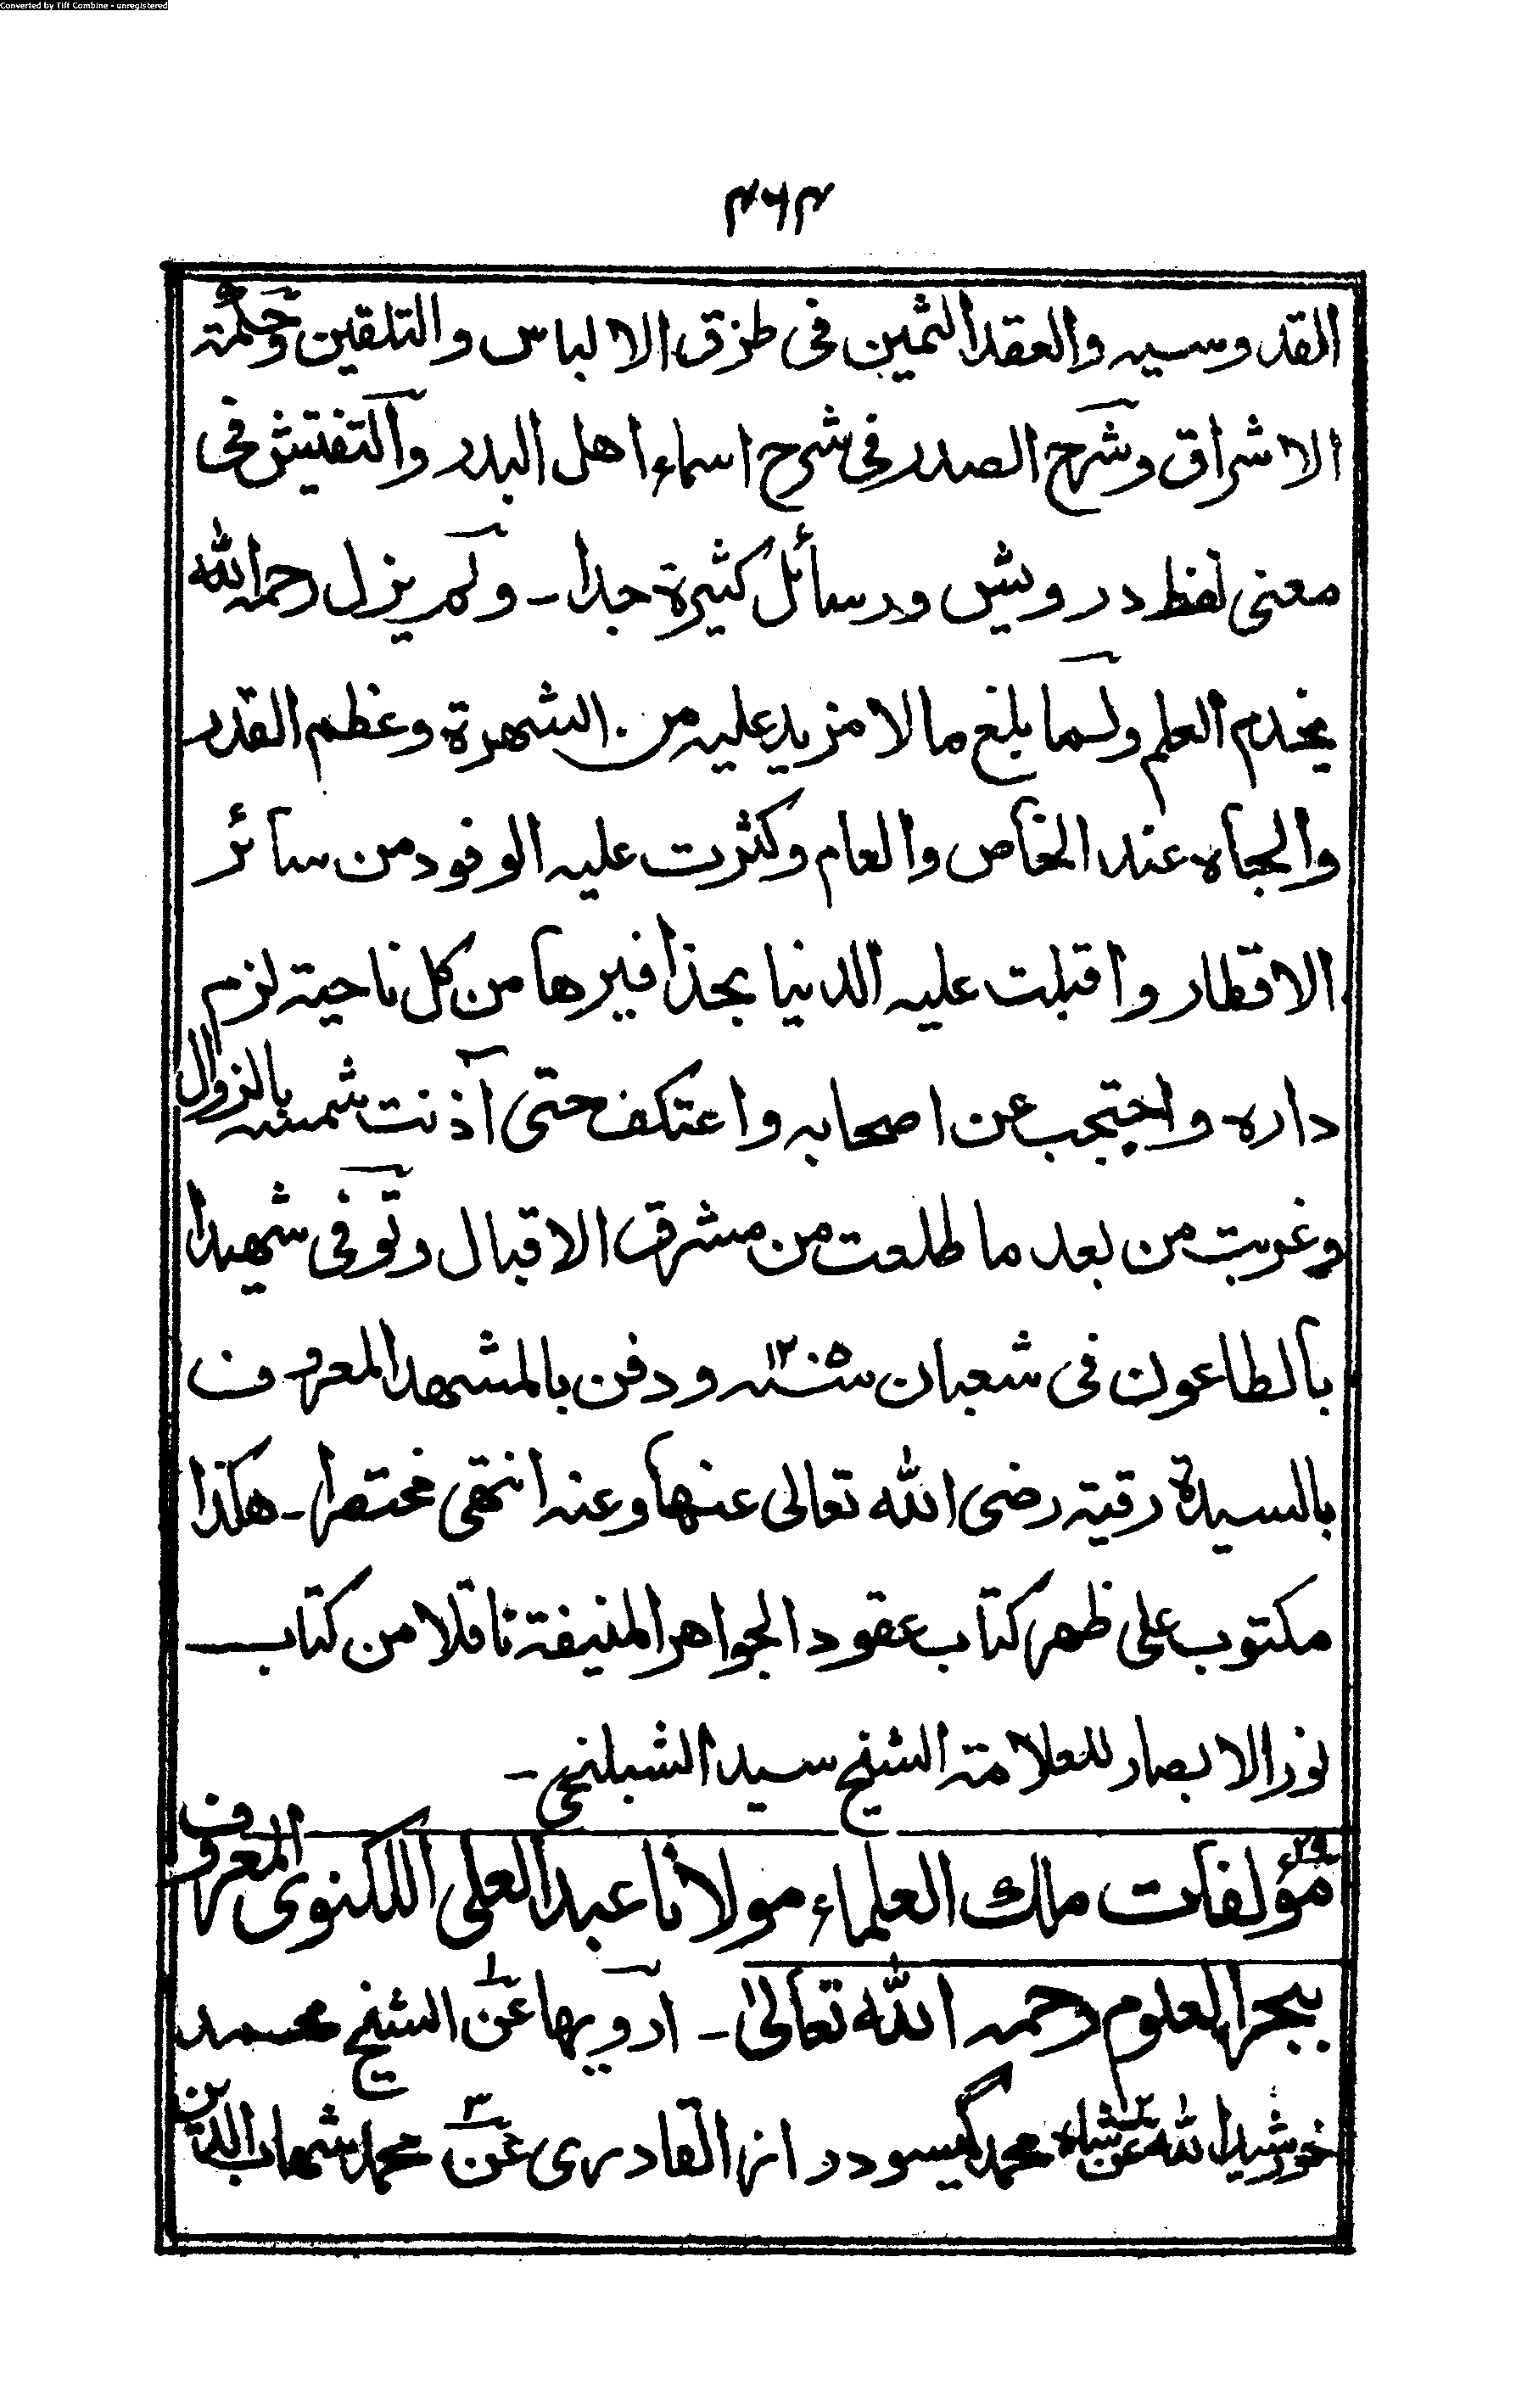 Converted by Tiff Combine - unregistered
۴۶۴
القدوسيه والعقد الثمين فى طرق الالباس والتلقين وحكمة
الاشراق وشرح الصدر فى شرح اسماء اهل البدر والتفتيش فى
معنى لفظ درويش ورسائل كثيرة جدا - ولم يزل رحمه الله
يخدم العلم ولما بلغ مالا مزيد عليه من الشهرة وعظم القدر
والجاه عند الخاص والعام وكثرت عليه الوفود من سائر
الاقطار واقبلت عليه الدنيا بحذافيرها من كل ناحية لزم
داره واحتجب عن اصحابه واعتكف حتى آذنت شمسه بالزوال
وغربت من بعد ما طلعت من مشرق الاقبال وتوفى شهيدا
بالطاعون فى شعبان سنه ۱۲۰۵ ودفن بالمشهد المعروف
بالسيدة رقية رضى الله تعالى عنها وعنه انتهى مختصرا - هكذا
مكتوب على ظهر كتاب عقود الجواهر المنيفة ناقلا من كتاب
نور الابصار للعلامة الشيخ سيد الشبلنجى -
مؤلفات ملك العلماء مولانا عبد العلى اللكنوى المعروف
ببحر العلوم رحمه الله تعالىٰ - ارويها عن ۱ الشيخ محمد
خورشيد الله عن ۲ شاه محمد گيسودراز القادرى عن ۳ محمد شهاب الدين